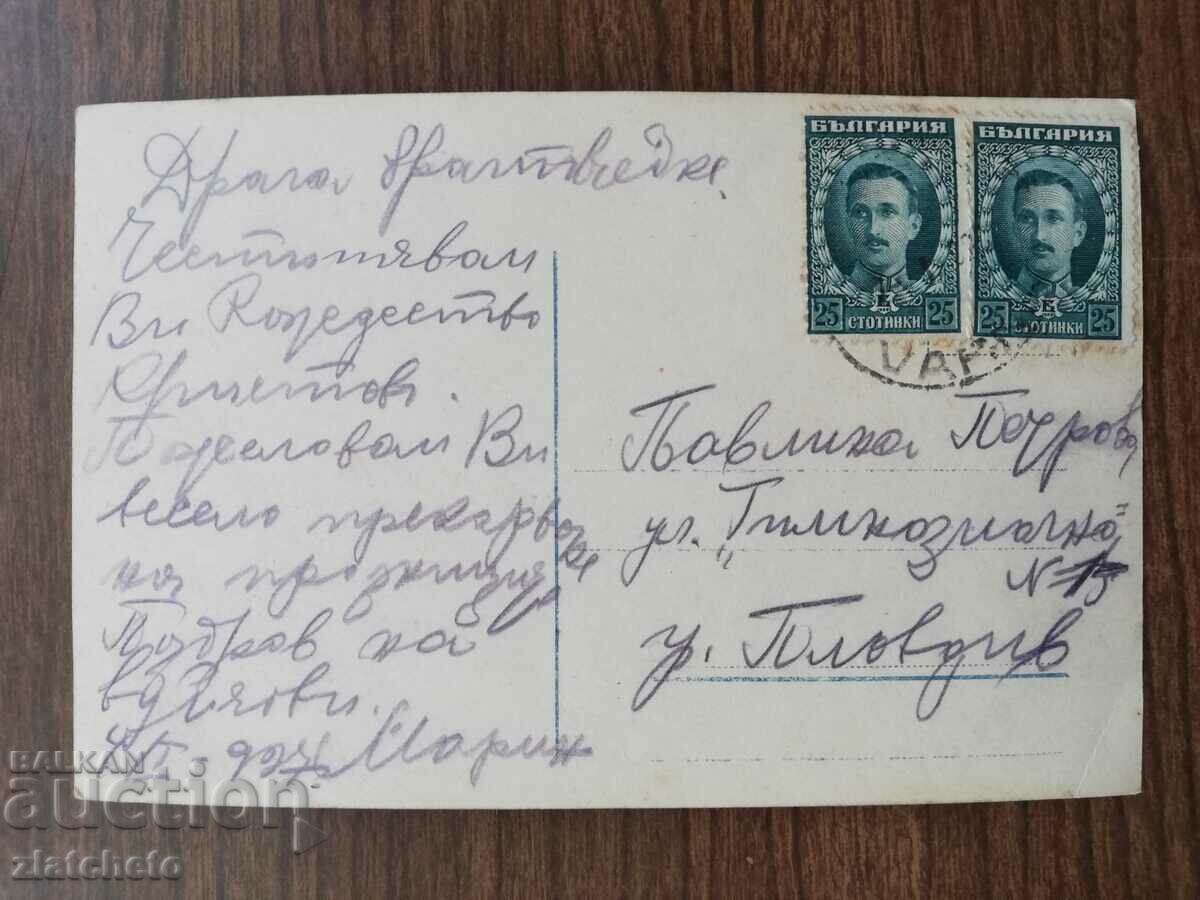 Драга братовчедке
Честитявам
Ви Рождество
Христово.
Пожеловам Ви
весело прекарване
на празници
Поздрав на
вдички.
Марин
БЪЛГАРИЯ
25 СТОТИНКИ 25
БЪЛГАРИЯ
25 СТОТИНКИ 25
VAR
Павлина Петрова
ул. „Гимназиална"
N 15
гр. Пловдив
BALKAN
auction
zlatcheto